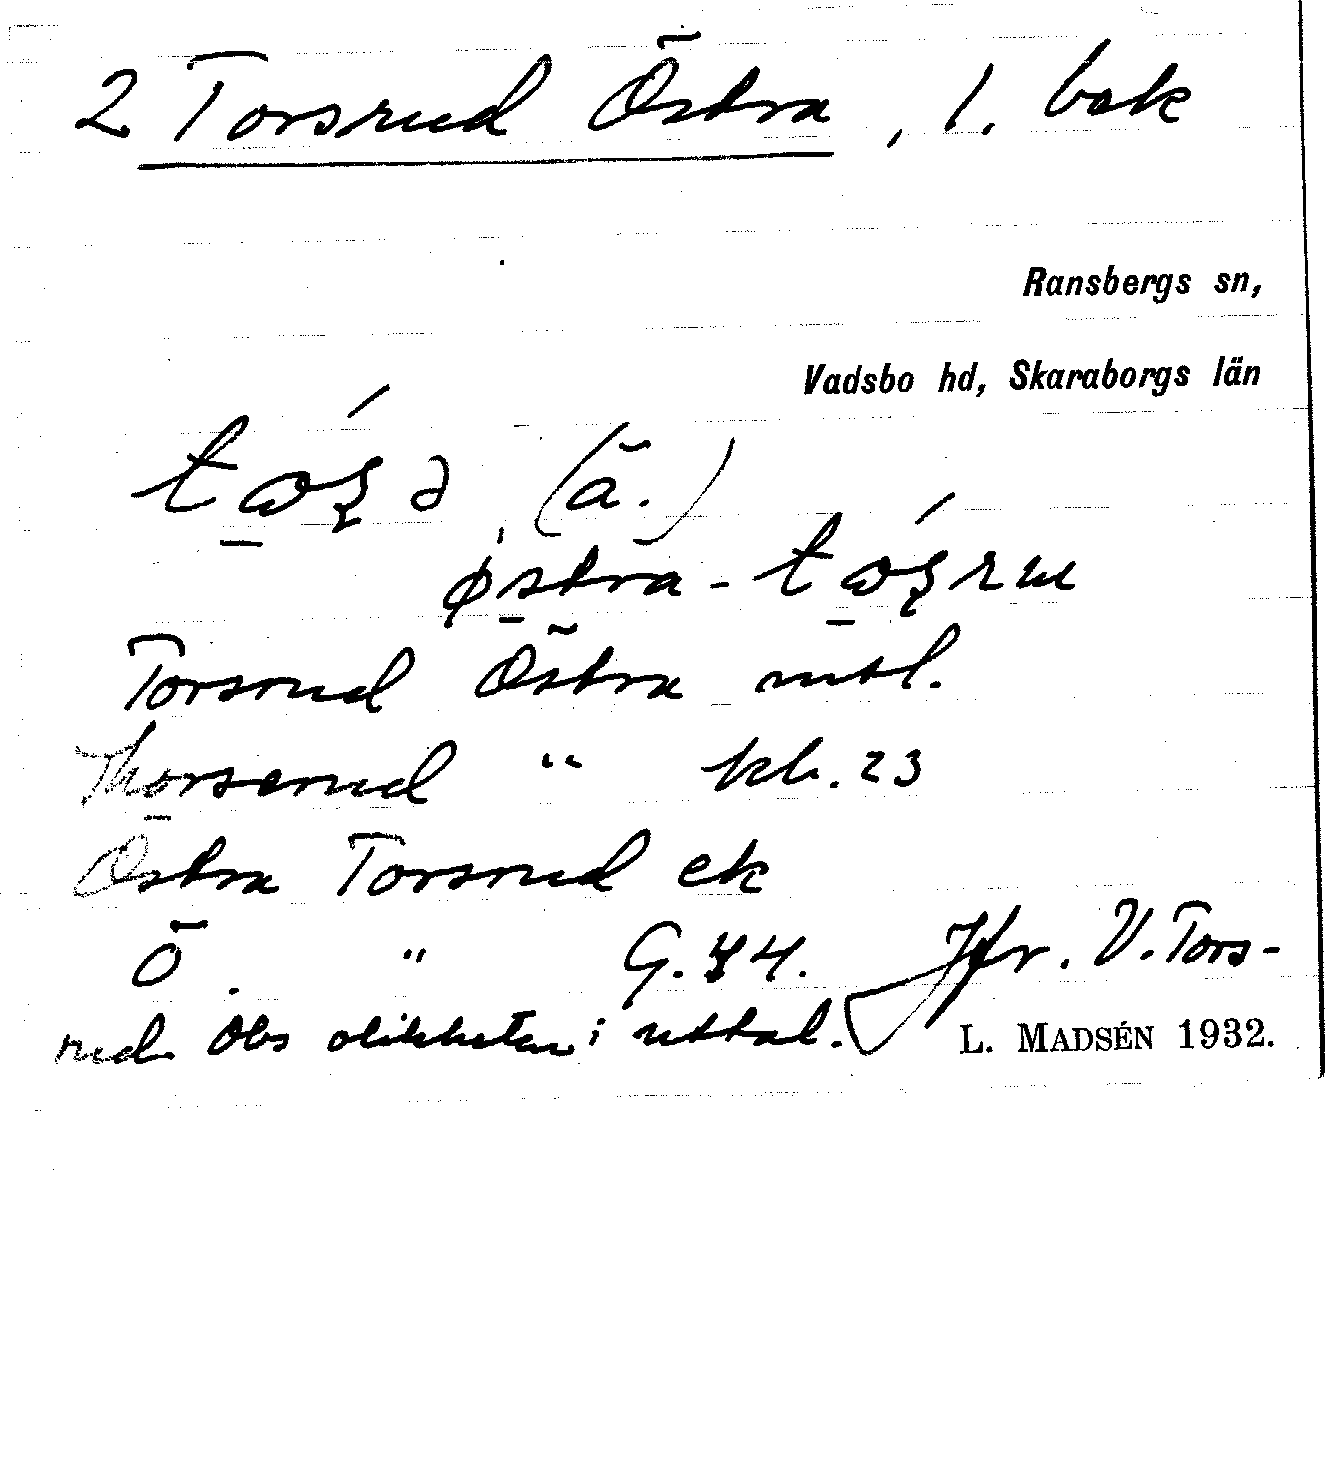 2 Torsrud Östra, 1. bok
Ransbergs sn,
Vadsbo hd, Skaraborgs län
(ä.)
Torsrud Östra mtl.
Thorserud " kb. 23
Östra Torsrud ek
Ö. " G. 44. Jfr. V. Tors-
rud. Obs olikheten i uttal.
L. MADSÉN 1932.